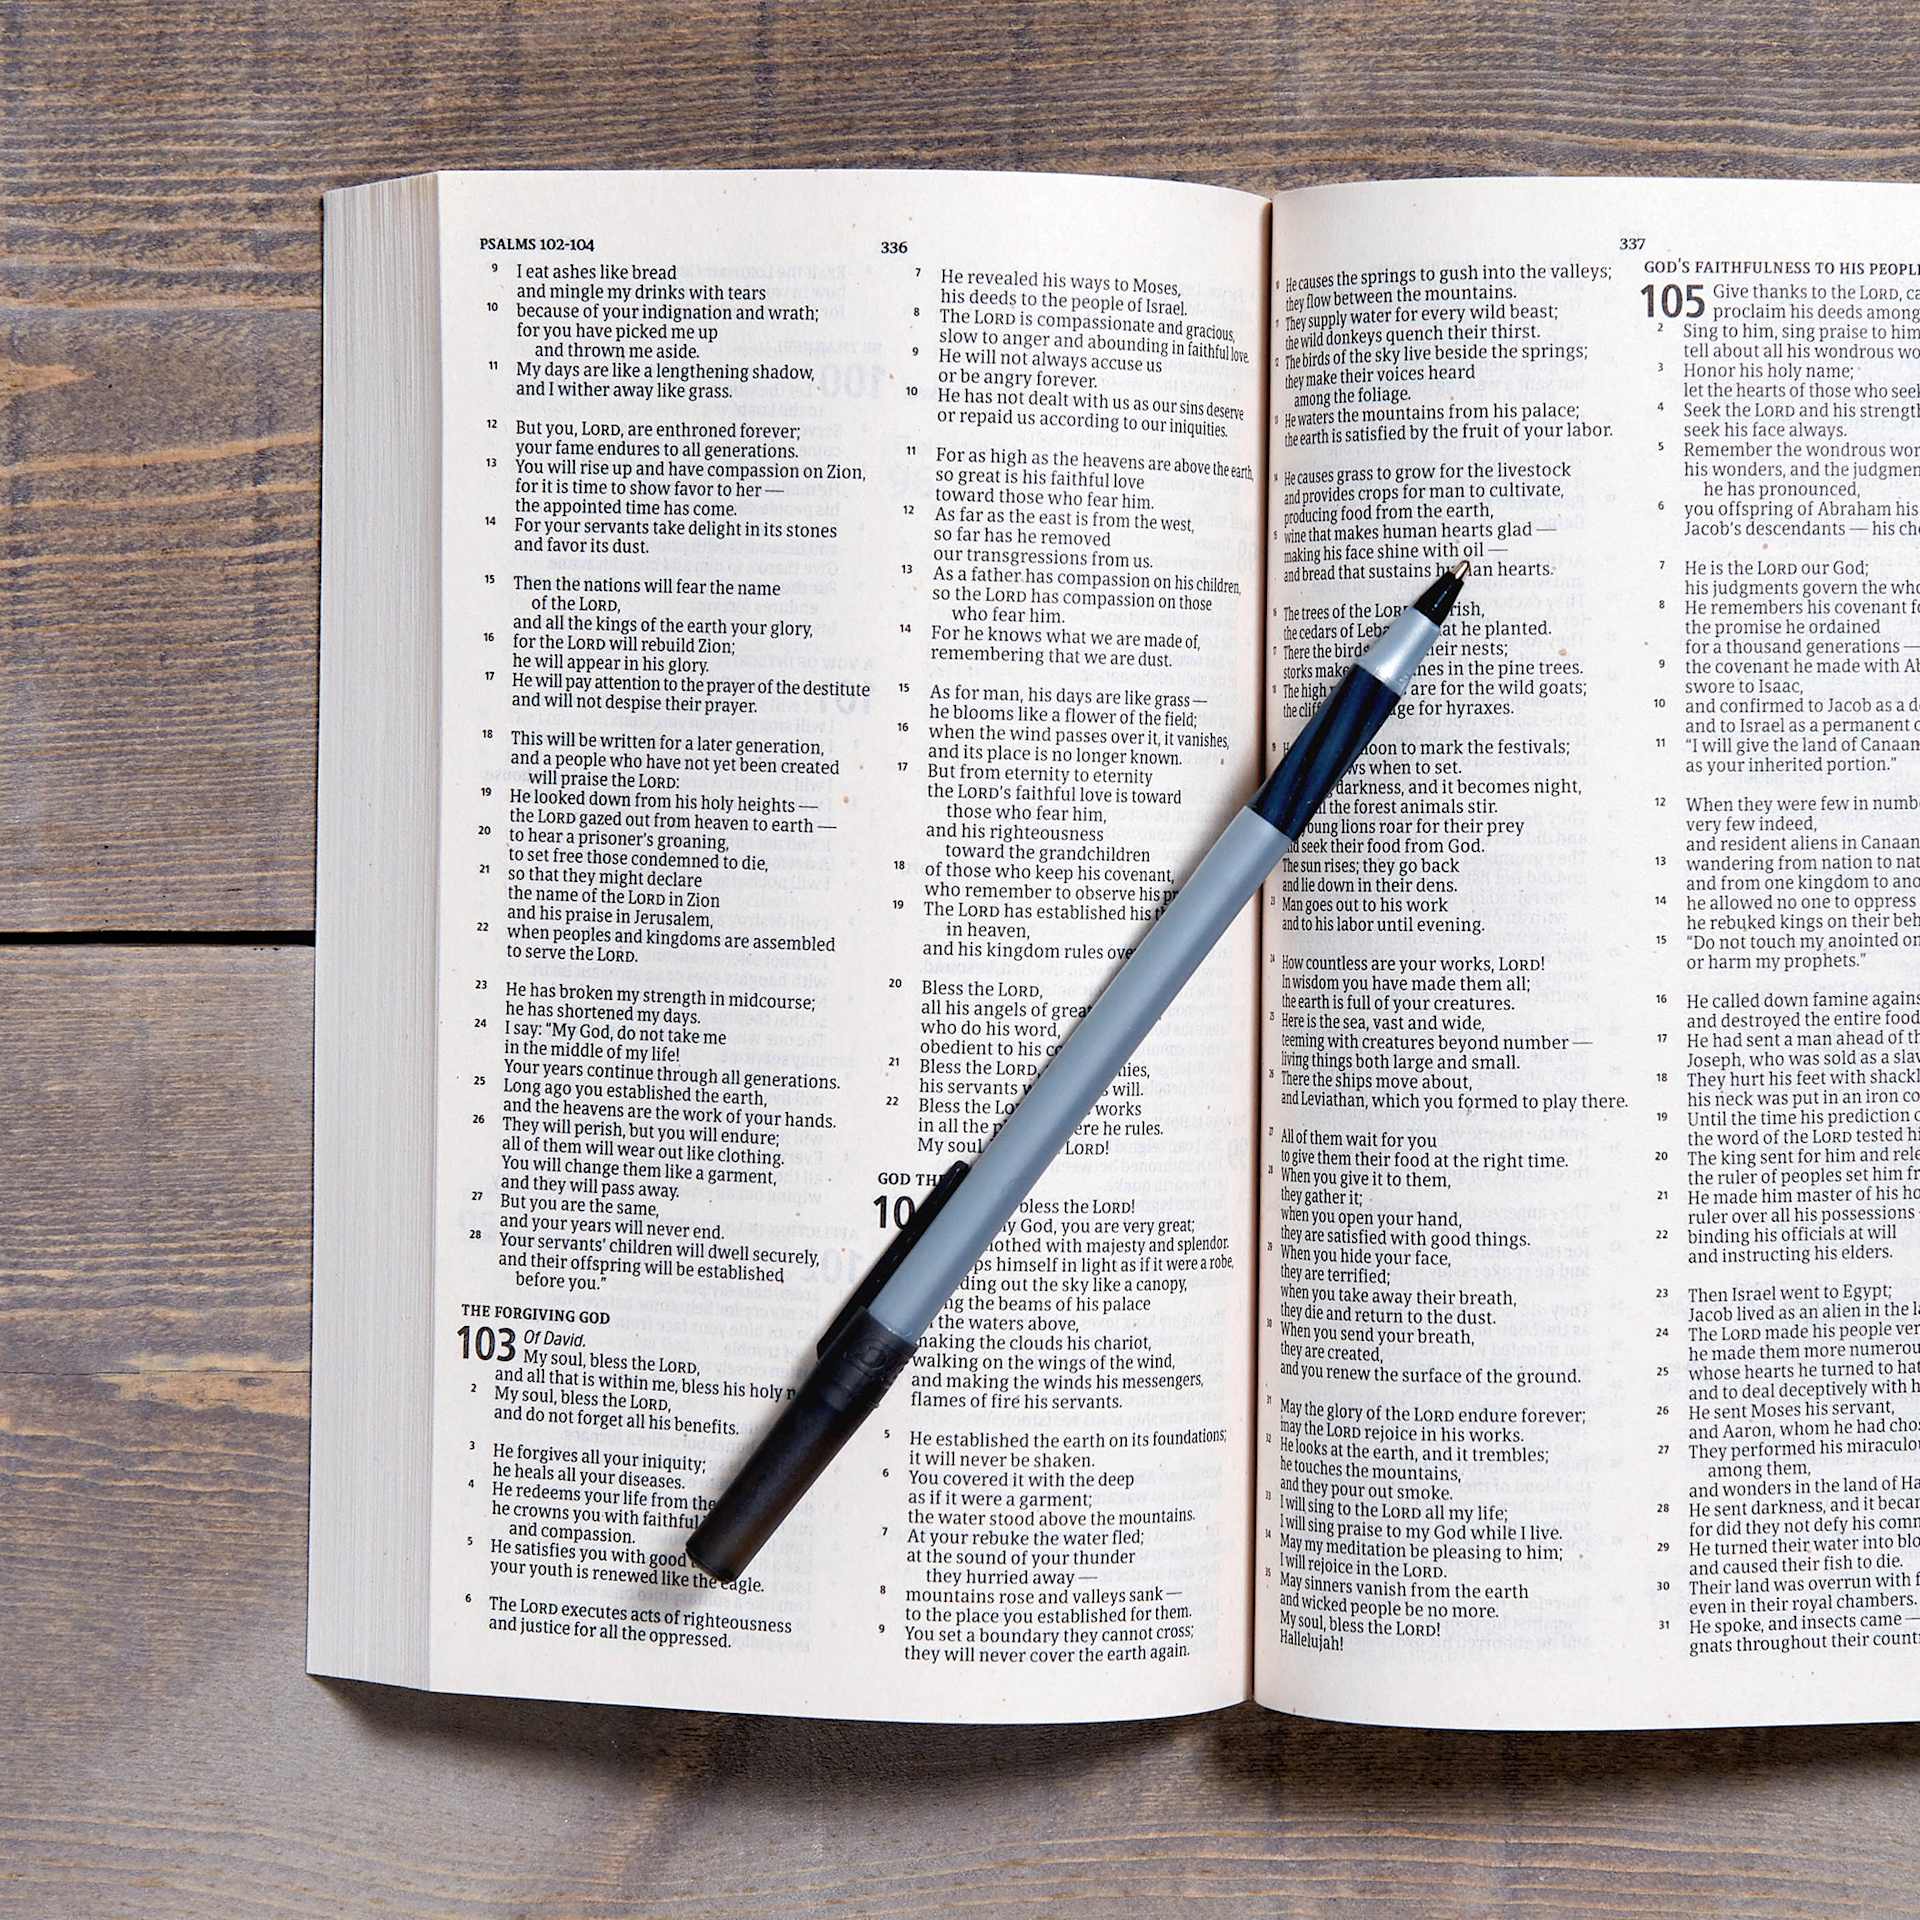 PSALMS 102-104
336
9 I eat ashes like bread
and mingle my drinks with tears
10 because of your indignation and wrath;
for you have picked me up
and thrown me aside.
11 My days are like a lengthening shadow,
and I wither away like grass.
12 But you, LORD, are enthroned forever;
your fame endures to all generations.
13 You will rise up and have compassion on Zion,
for it is time to show favor to her —
the appointed time has come.
14 For your servants take delight in its stones
and favor its dust.
15 Then the nations will fear the name
of the LORD,
and all the kings of the earth your glory,
16 for the LORD will rebuild Zion;
he will appear in his glory.
17 He will pay attention to the prayer of the destitute
and will not despise their prayer.
18 This will be written for a later generation,
and a people who have not yet been created
will praise the LORD:
19 He looked down from his holy heights —
the LORD gazed out from heaven to earth —
20 to hear a prisoner's groaning,
to set free those condemned to die,
21 so that they might declare
the name of the LORD in Zion
and his praise in Jerusalem,
22 when peoples and kingdoms are assembled
to serve the LORD.
23 He has broken my strength in midcourse;
he has shortened my days.
24 I say: "My God, do not take me
in the middle of my life!
Your years continue through all generations.
25 Long ago you established the earth,
and the heavens are the work of your hands.
26 They will perish, but you will endure;
all of them will wear out like clothing.
You will change them like a garment,
and they will pass away.
27 But you are the same,
and your years will never end.
28 Your servants' children will dwell securely,
and their offspring will be established
before you."
THE FORGIVING GOD
103 Of David.
My soul, bless the LORD,
and all that is within me, bless his holy
2 My soul, bless the LORD,
and do not forget all his benefits.
3 He forgives all your iniquity;
he heals all your diseases.
4 He redeems your life from the
he crowns you with faithful
and compassion.
5 He satisfies you with good
your youth is renewed like the eagle.
6 The LORD executes acts of righteousness
and justice for all the oppressed.
7 He revealed his ways to Moses,
his deeds to the people of Israel.
8 The LORD is compassionate and gracious,
slow to anger and abounding in faithful love.
9 He will not always accuse us
or be angry forever.
10 He has not dealt with us as our sins deserve
or repaid us according to our iniquities.
11 For as high as the heavens are above the earth,
so great is his faithful love
toward those who fear him.
12 As far as the east is from the west,
so far has he removed
our transgressions from us.
13 As a father has compassion on his children,
so the LORD has compassion on those
who fear him.
14 For he knows what we are made of,
remembering that we are dust.
15 As for man, his days are like grass —
he blooms like a flower of the field;
16 when the wind passes over it, it vanishes,
and its place is no longer known.
17 But from eternity to eternity
the LORD's faithful love is toward
those who fear him,
and his righteousness
toward the grandchildren
18 of those who keep his covenant,
who remember to observe his
19 The LORD has established his
in heaven,
and his kingdom rules
20 Bless the LORD,
all his angels of
who do his word,
obedient to his
21 Bless the LORD,
his servants will.
22 Bless the works
in all the he rules.
My soul, LORD!
GOD
bless the LORD!
God, you are very great;
with majesty and splendor.
himself in light as if it were a robe,
out the sky like a canopy,
the beams of his palace
the waters above,
making the clouds his chariot,
walking on the wings of the wind,
and making the winds his messengers,
flames of fire his servants.
5 He established the earth on its foundations;
it will never be shaken.
6 You covered it with the deep
as if it were a garment;
the water stood above the mountains.
7 At your rebuke the water fled;
at the sound of your thunder
they hurried away —
8 mountains rose and valleys sank —
to the place you established for them.
9 You set a boundary they cannot cross;
they will never cover the earth again.
337
10 He causes the springs to gush into the valleys;
they flow between the mountains.
11 They supply water for every wild beast;
the wild donkeys quench their thirst.
12 The birds of the sky live beside the springs;
they make their voices heard
among the foliage.
13 He waters the mountains from his palace;
the earth is satisfied by the fruit of your labor.
14 He causes grass to grow for the livestock
and provides crops for man to cultivate,
producing food from the earth,
15 wine that makes human hearts glad —
making his face shine with oil —
and bread that sustains human hearts.
16 The trees of the LORD
the cedars of he planted.
17 There the birds their nests;
storks make in the pine trees.
18 The high are for the wild goats;
the for hyraxes.
19 moon to mark the festivals;
when to set.
darkness, and it becomes night,
the forest animals stir.
young lions roar for their prey
and seek their food from God.
The sun rises; they go back
and lie down in their dens.
23 Man goes out to his work
and to his labor until evening.
24 How countless are your works, LORD!
In wisdom you have made them all;
the earth is full of your creatures.
25 Here is the sea, vast and wide,
teeming with creatures beyond number —
living things both large and small.
26 There the ships move about,
and Leviathan, which you formed to play there.
27 All of them wait for you
to give them their food at the right time.
28 When you give it to them,
they gather it;
when you open your hand,
they are satisfied with good things.
29 When you hide your face,
they are terrified;
when you take away their breath,
they die and return to the dust.
30 When you send your breath,
they are created,
and you renew the surface of the ground.
31 May the glory of the LORD endure forever;
may the LORD rejoice in his works.
32 He looks at the earth, and it trembles;
he touches the mountains,
and they pour out smoke.
33 I will sing to the LORD all my life;
I will sing praise to my God while I live.
34 May my meditation be pleasing to him;
I will rejoice in the LORD.
35 May sinners vanish from the earth
and wicked people be no more.
My soul, bless the LORD!
Hallelujah!
GOD'S FAITHFULNESS TO HIS PEOPLE
105 Give thanks to the LORD,
proclaim his deeds among
2 Sing to him, sing praise to him
tell about all his wondrous
3 Honor his holy name;
let the hearts of those who seek
4 Seek the LORD and his strength
seek his face always.
5 Remember the wondrous
his wonders, and the
he has pronounced,
6 you offspring of Abraham his
Jacob's descendants — his
7 He is the LORD our God;
his judgments govern the
8 He remembers his covenant
the promise he ordained
for a thousand generations —
9 the covenant he made with
swore to Isaac,
10 and confirmed to Jacob as a
and to Israel as a permanent
11 "I will give the land of Canaan
as your inherited portion."
12 When they were few in
very few indeed,
and resident aliens in Canaan
13 wandering from nation to
and from one kingdom to
14 he allowed no one to oppress
he rebuked kings on their
15 "Do not touch my anointed
or harm my prophets."
16 He called down famine
and destroyed the entire food
17 He had sent a man ahead of
Joseph, who was sold as a
18 They hurt his feet with
his neck was put in an iron
19 Until the time his prediction
the word of the LORD tested
20 The king sent for him and
the ruler of peoples set him
21 He made him master of his
ruler over all his possessions
22 binding his officials at will
and instructing his elders.
23 Then Israel went to Egypt;
Jacob lived as an alien in the
24 The LORD made his people
he made them more
25 whose hearts he turned to
and to deal deceptively with
26 He sent Moses his servant,
and Aaron, whom he had
27 They performed his
among them,
and wonders in the land of
28 He sent darkness, and it
for did they not defy his
29 He turned their water into
and caused their fish to die.
30 Their land was overrun with
even in their royal chambers.
31 He spoke, and insects came —
gnats throughout their